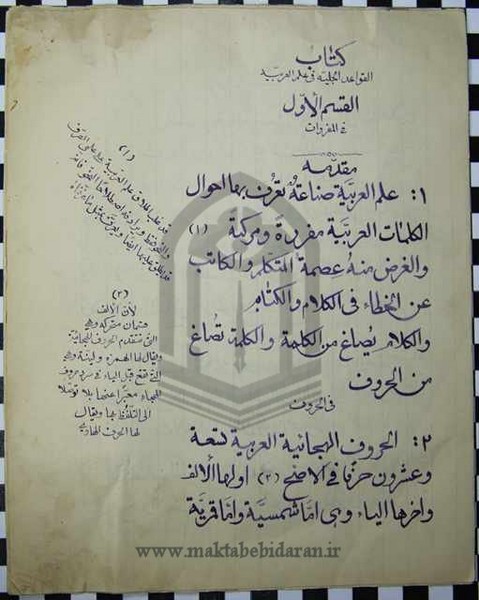 كتاب
القواعد الجلية في علم العربية
القسم الأول
في المفردات
مقدمه
١: علم العربية صناعة تعرف بها احوال
الكلمات العربية مفردة ومركبة (١)
والغرض منه عصمة المتكلم والكاتب
عن الخطاء في الكلام والكتاب
والكلام يُصاغ من الكلمة والكلمة تصاغ
من الحروف
في الحروف
٢: الحروف الهجائية العربية تسعة
وعشرون حرفًا في الاصح (٢) اولها الالف
واخرها الياء وهي امّا شمسيّة وامّا قمريّة
(١)
قد غلب اطلاق علم العربية على علمي الصرف
والنحو
(٢)
لأن الألف
ضربان متحركة وهي
التي تتقدم الحروف الهجائية
ويقال لها الهمزة ولينة وهي
التي تقع قبل الياء في سرد حروف
الهجاء معبّرًا عنها بلا توصّلا
الى التلفظ بها ويقال
لها الحرف الهاوي
www.maktabebidaran.ir